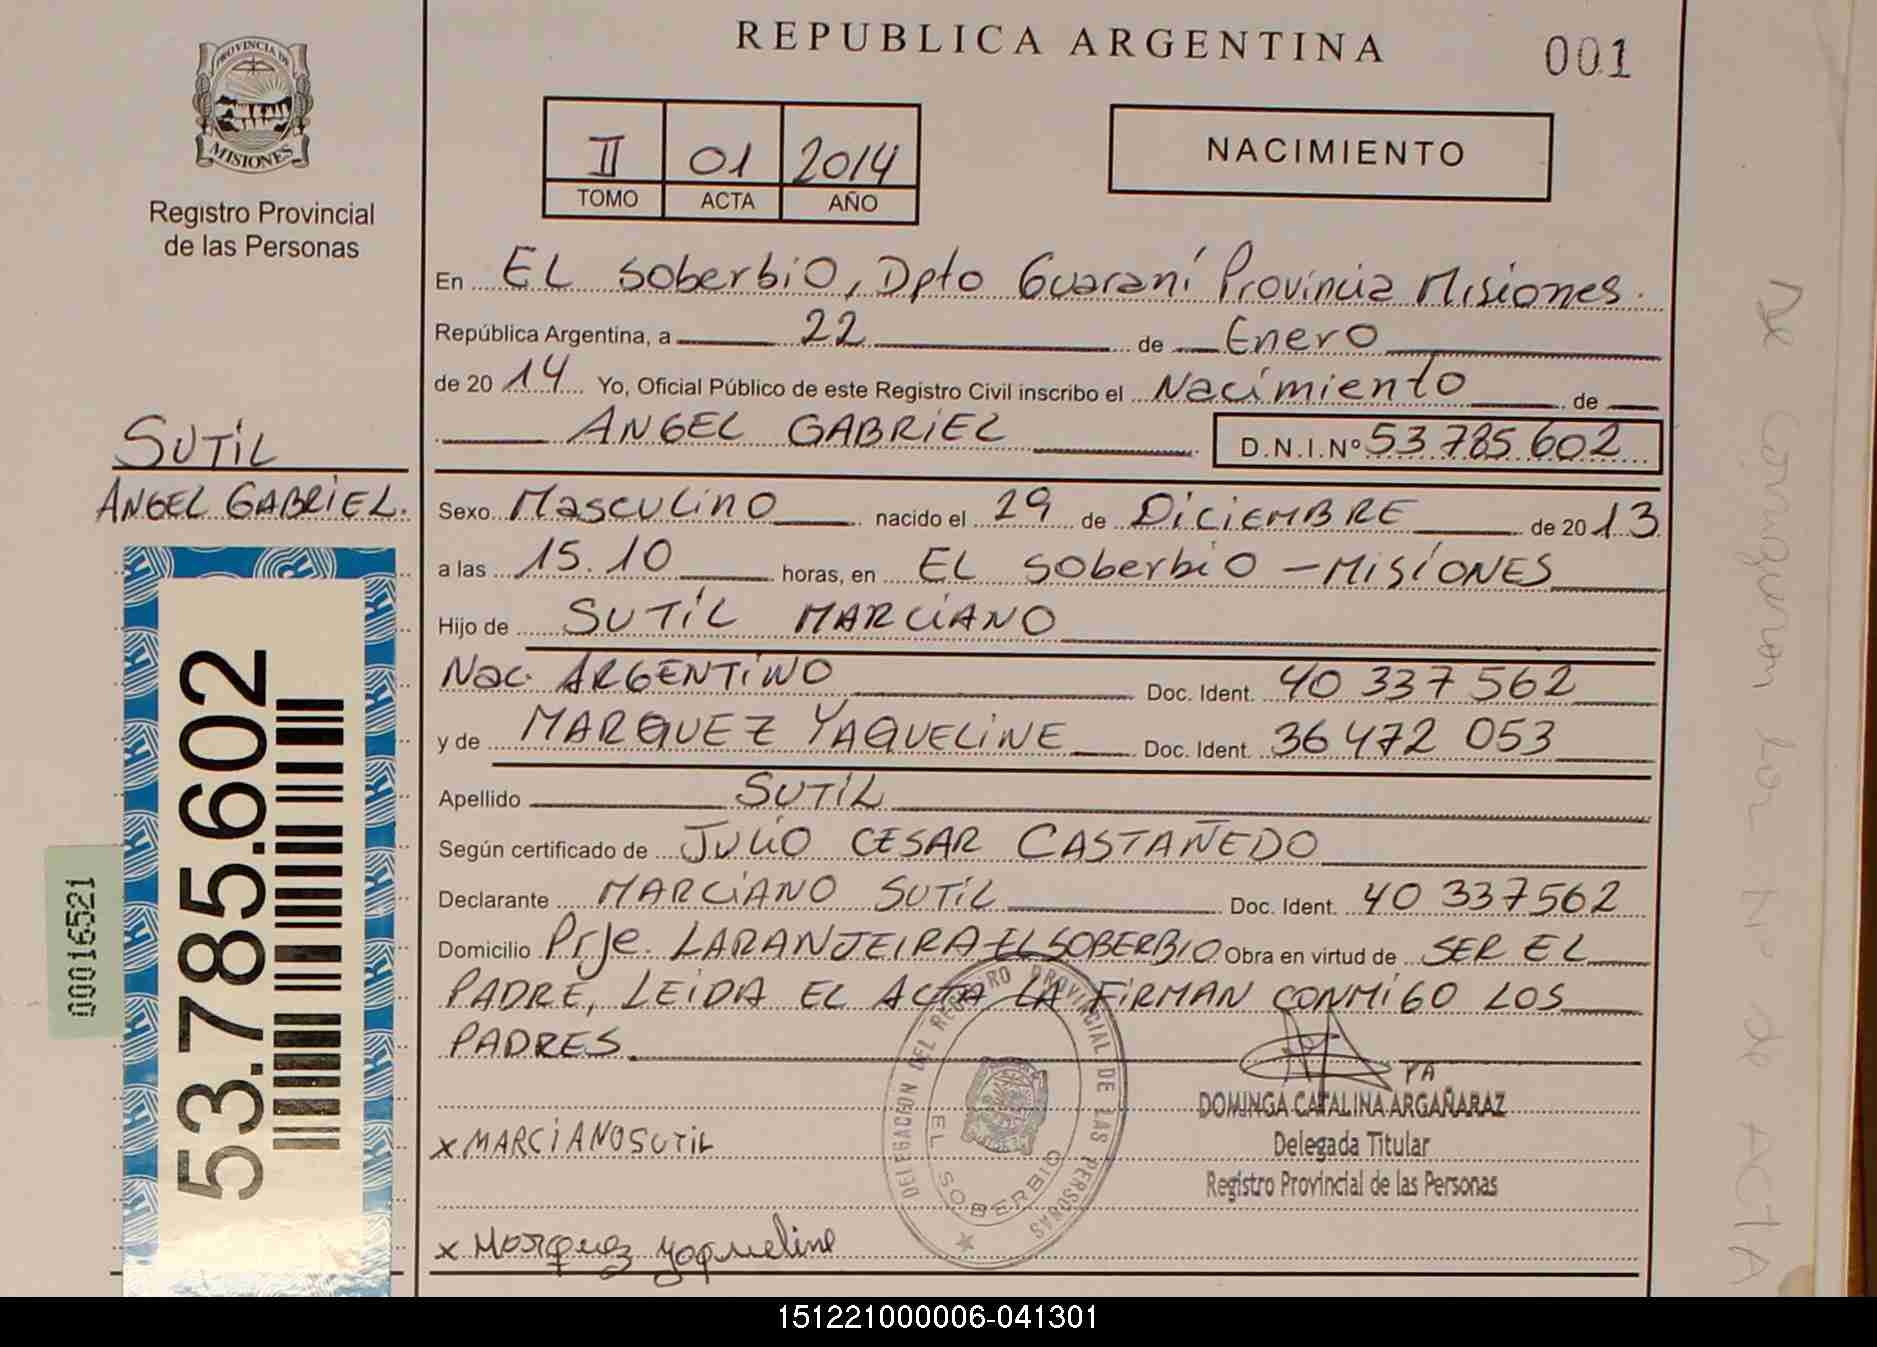 REPUBLICA ARGENTINA
001
PROVINCIA DE
MISIONES
Registro Provincial
de las Personas
II 01 2014
TOMO ACTA AÑO
NACIMIENTO
En EL Soberbio, Dpto Guaraní Provincia Misiones.
República Argentina, a 22 de Enero
de 20 14 Yo, Oficial Público de este Registro Civil inscribo el Nacimiento de
ANGEL GABRIEL D.N.I.Nº 53 785 602
SUTIL
ANGEL GABRIEL.
Sexo Masculino nacido el 29 de DICIEMBRE de 20 13
a las 15.10 horas, en EL Soberbio - MISIONES
Hijo de SUTIL MARCIANO
Nac. ARGENTINO Doc. Ident. 40 337 562
y de MARQUEZ YAQUELINE Doc. Ident. 36 472 053
Apellido SUTIL
Según certificado de JULIO CESAR CASTAÑEDO
Declarante MARCIANO SUTIL Doc. Ident. 40 337562
Domicilio Prje. LARANJEIRA-EL SOBERBIO Obra en virtud de SER EL
PADRE, LEIDA EL ACTA LA FIRMAN CONMIGO LOS
PADRES
53.785.602
00016521
DELEGACION DEL REGISTRO PROVINCIAL DE LAS PERSONAS
EL SOBERBIO
DOMINGA CATALINA ARGAÑARAZ
Delegada Titular
Registro Provincial de las Personas
x MARCIANO SUTIL
x Marquez yaqueline
de ACTA
151221000006-041301